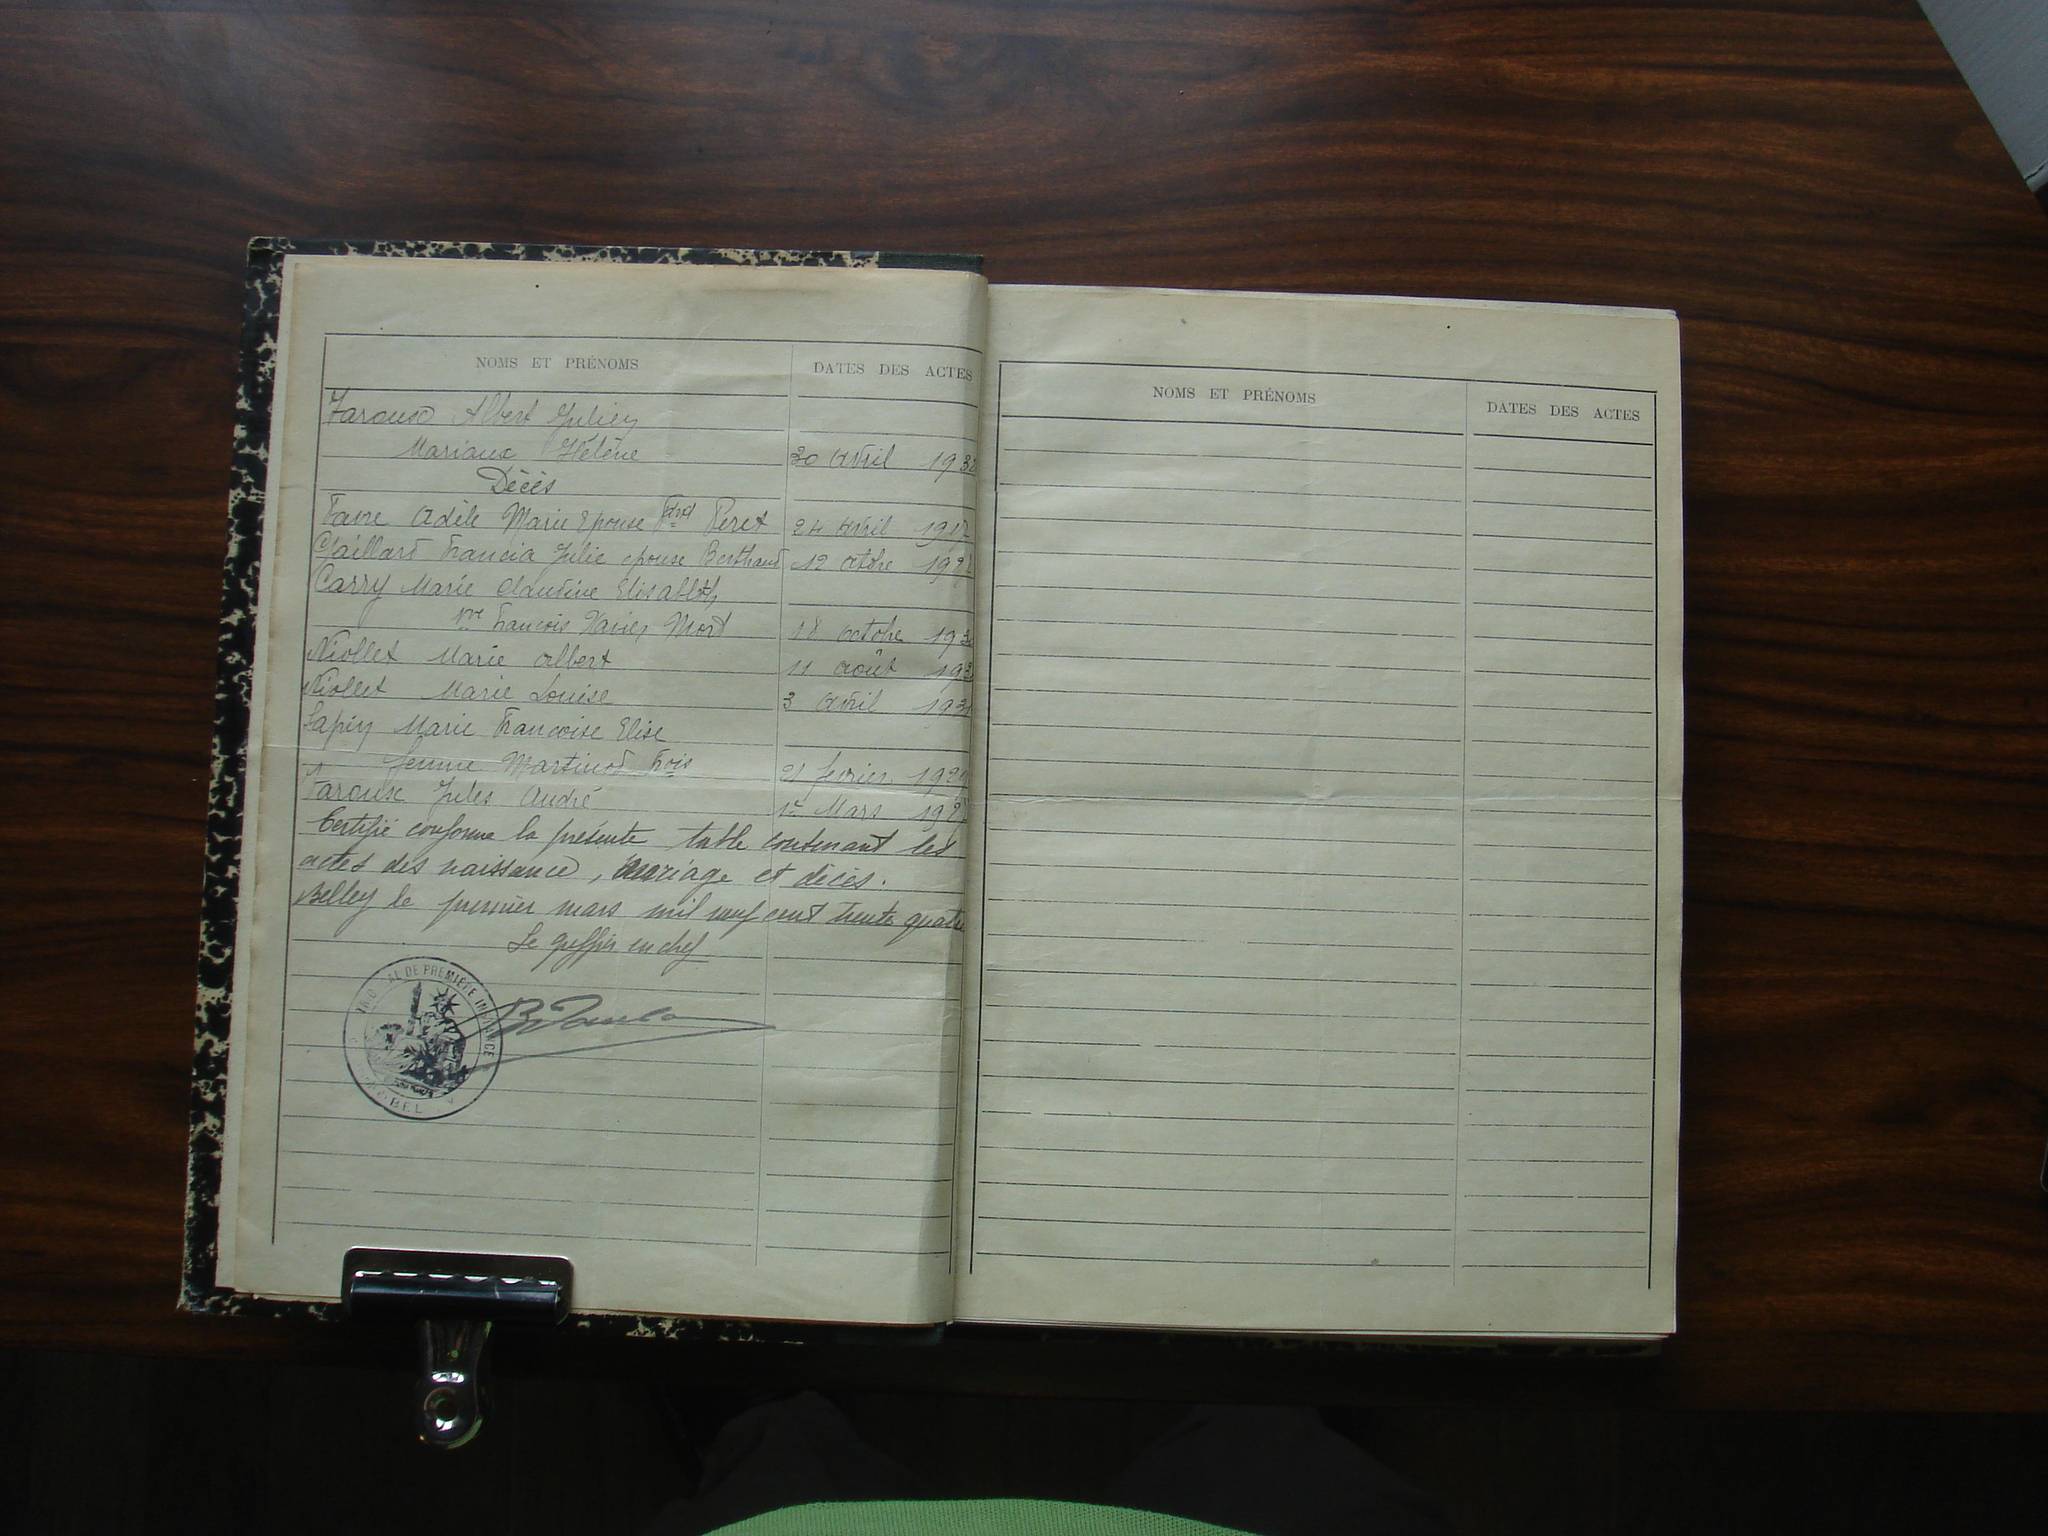 NOMS ET PRÉNOMS DATES DES ACTES
Taroux Albert Julien
Mariaux Hélène 30 avril 193
Décès
Favre Adèle Marie Epouse Peret 24 avril 19
Francia Julie epouse Berthaud 12 octbre 19
Carry Marie Claudine Elisabeth
Vve François Xavier Mort 18 octobre 193
Niollet Marie Albert 11 août 193
Niollet Marie Louise 3 avril 193
Sapin Marie Françoise Elise
femme Martinod Fois 21 fevrier 192
Taroux Jules André 1er Mars 19
Certifié conforme la présente table contenant les
actes des naissance, mariage et décès.
Belley le premier mars mil neuf cent trente quatre
Le greffier en chef
AL DE PREMIÈRE INSTANCE
BEL
NOMS ET PRÉNOMS DATES DES ACTES